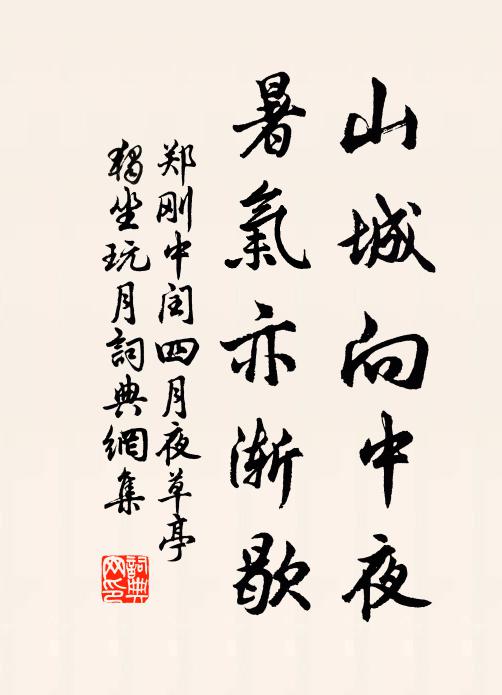 山城向中夜
暑氣亦漸歇
郑刚中闰四月夜草亭
獨坐玩月詞典網集
詞典網印